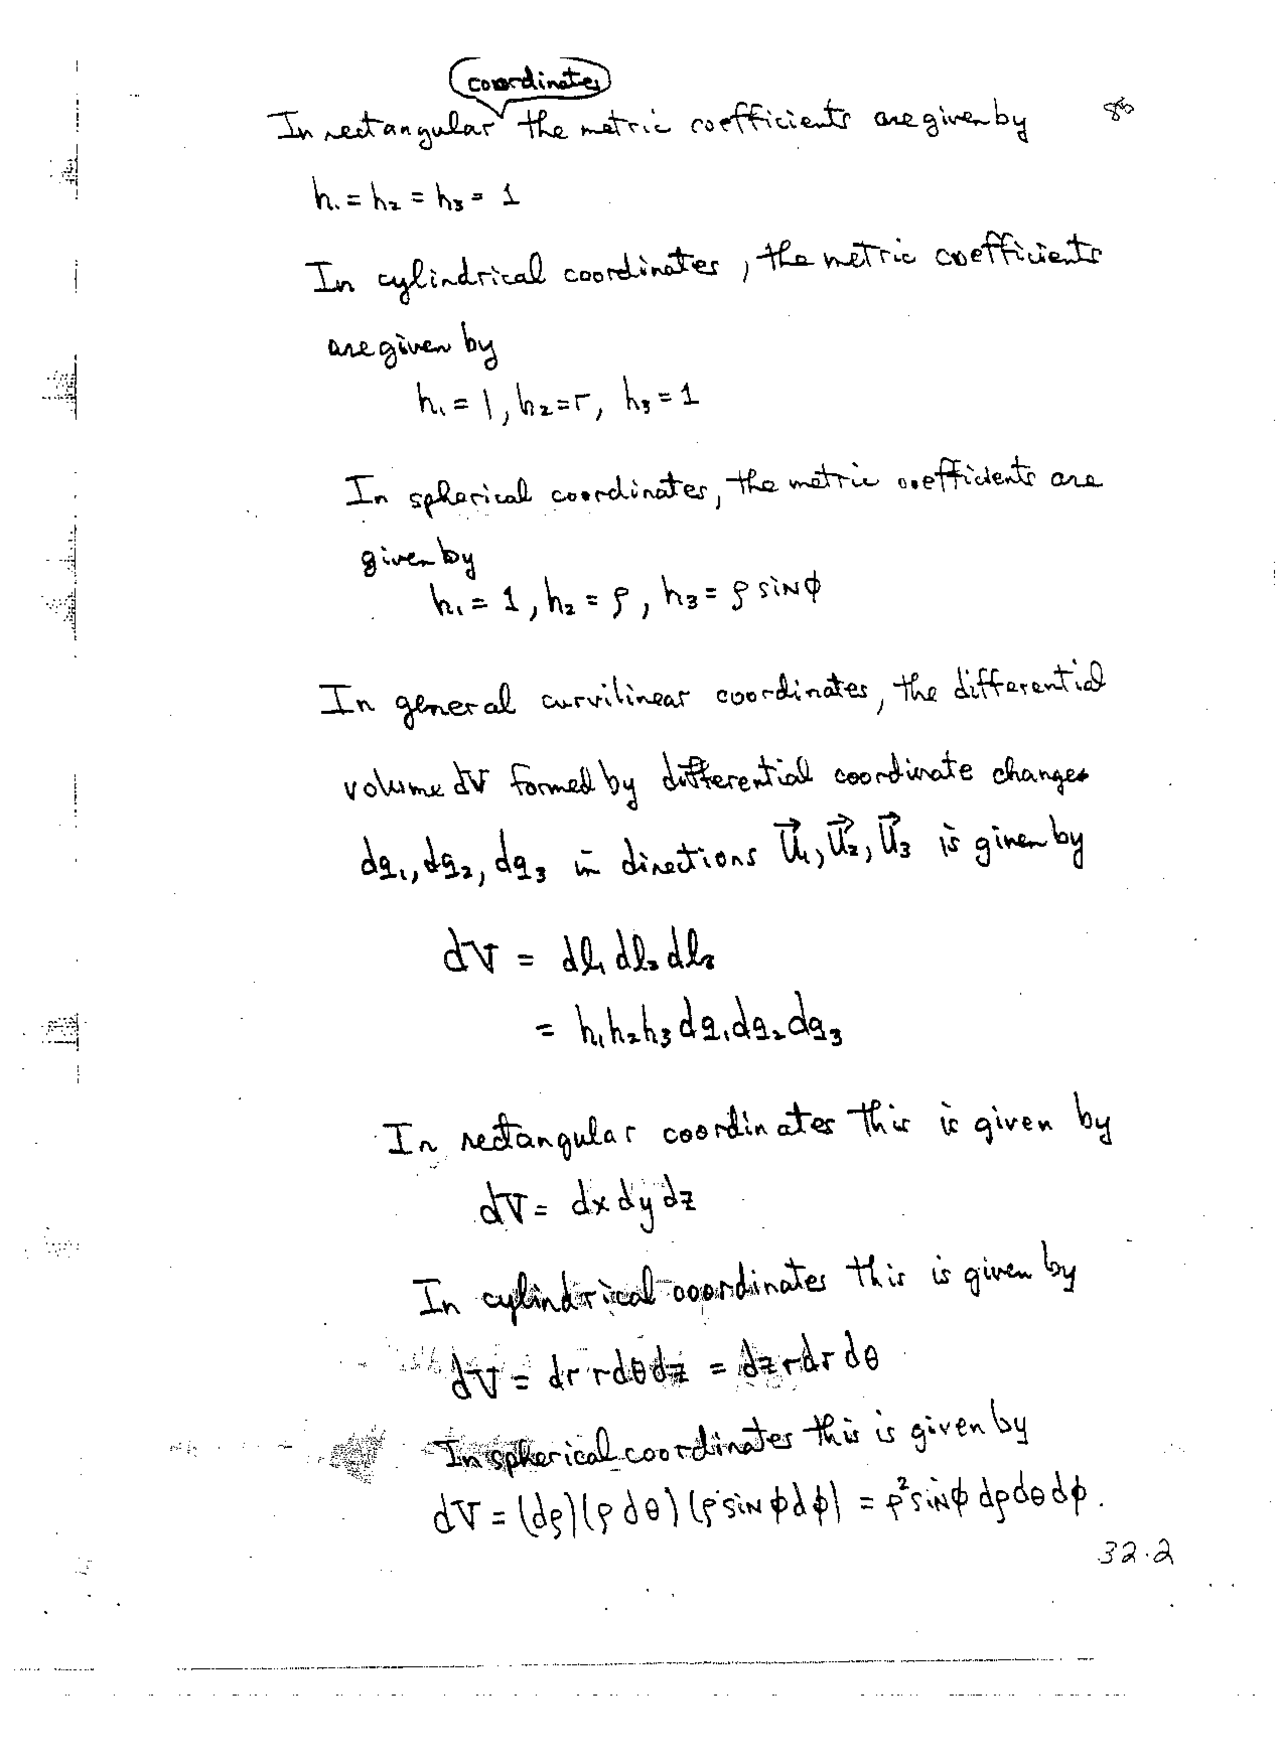 coordinates
In rectangular the metric coefficients are given by
h₁ = h₂ = h₃ = 1
In cylindrical coordinates, the metric coefficients
are given by
h₁ = 1, h₂ = r, h₃ = 1
In spherical coordinates, the metric coefficients are
given by
h₁ = 1, h₂ = ρ, h₃ = ρ sin ϕ
In general curvilinear coordinates, the differential
volume dV formed by differential coordinate changes
dq₁, dq₂, dq₃ in directions U⃗₁, U⃗₂, U⃗₃ is given by
dV = dl₁ dl₂ dl₃
= h₁h₂h₃ dq₁ dq₂ dq₃
In rectangular coordinates this is given by
dV = dx dy dz
In cylindrical coordinates this is given by
dV = dr r dθ dz = dz r dr dθ
In spherical coordinates this is given by
dV = (dρ)(ρ dθ)(ρ sin ϕ dϕ) = ρ² sin ϕ dρ dθ dϕ.
32.2